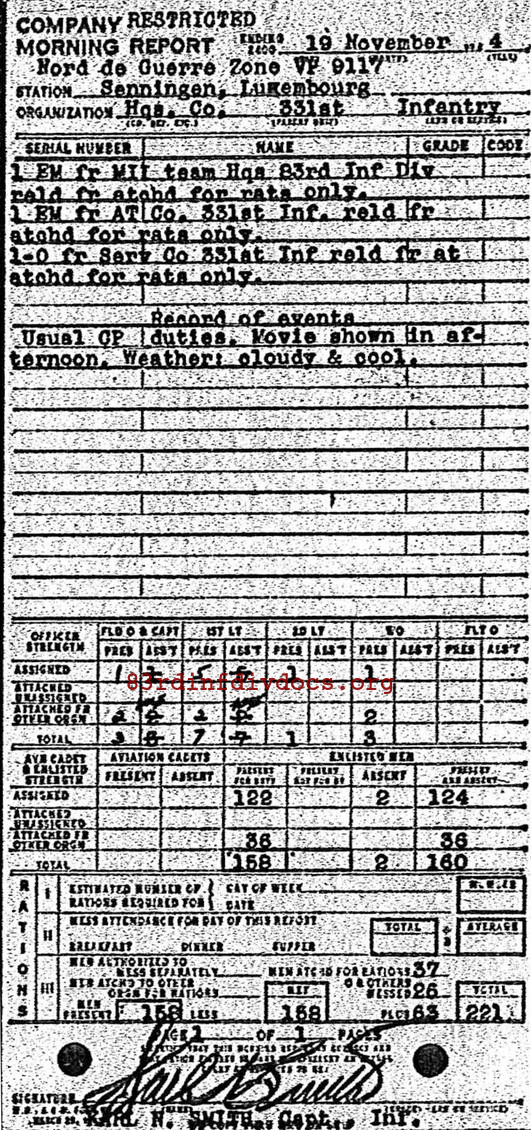 COMPANY RESTRICTED
MORNING REPORT ENDING 2400 19 November 4
Nord de Guerre Zone VP 9117
STATION Senningen, Luxembourg
ORGANIZATION Hqs. Co. 331st Infantry
SERIAL NUMBER NAME GRADE CODE
1 EM fr MII team Hqs 83rd Inf Div
reld fr atchd for rats only.
1 EM fr AT Co. 331st Inf. reld fr
atchd for rats only.
1-O fr Serv Co 331st Inf reld fr at
atchd for rats only.
Record of events
Usual CP duties. Movie shown in af-
ternoon. Weather: cloudy & cool.
OFFICER STRENGTH FLD O & CAPT 1ST LT 2D LT WO FLT O
PRES ABS'T PRES ABS'T PRES ABS'T PRES ABS'T PRES ABS'T
ASSIGNED 1 5 1 1
83rdinfdivdocs.org
ATTACHED UNASSIGNED
ATTACHED FR OTHER ORGN 2 2 2
TOTAL 3 7 1 3
AVN CADET & ENLISTED STRENGTH AVIATION CADETS ENLISTED MEN
PRESENT ABSENT PRESENT FOR DUTY PRESENT NOT FOR DY ABSENT PRESENT AND ABSENT
ASSIGNED 122 2 124
ATTACHED UNASSIGNED
ATTACHED FR OTHER ORGN 36 36
TOTAL 158 2 160
RATIONS
I ESTIMATED NUMBER OF RATIONS REQUIRED FOR DAY OF WEEK DATE NUMBER
II MESS ATTENDANCE FOR DAY OF THIS REPORT TOTAL ÷ 3 AVERAGE
BREAKFAST DINNER SUPPER
III MEN AUTHORIZED TO MESS SEPARATELY MEN ATCHD FOR RATIONS 37
MEN ATCHD TO OTHER ORGN FOR RATIONS NET O & OTHERS MESSED 26 TOTAL
MEN PRESENT 158 LESS 158 PLUS 63 221
PAGE 1 OF 1 PAGES
SIGNATURE
KARL N. SMITH, Capt., Inf.